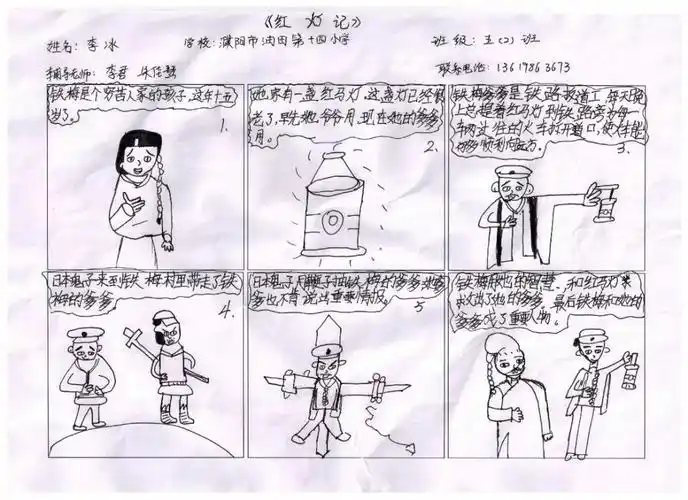 《红灯记》
姓名: 李冰 学校: 濮阳市油田第十四小学 班级: 五(2)班
辅导老师: 李君 朱佐慧 联系电话: 13619863673
铁梅是个穷苦人家的孩子,这年十五
岁了。
1.
她家有一盏红马灯,这盏灯已经很
老了,早先她爷爷用,现在她的爹爹
用。
2.
铁梅爹爹是铁路搬道工,每天晚
上总提着红马灯到铁路旁为每一
车两过往的火车打开道口,使火车能
够顺利向远方。
3.
日本鬼子来到铁梅村里带走了铁
梅的爹爹
4.
日本鬼子用鞭子抽铁梅的爹爹
爹也不肯说出重要情报。
5
铁梅用她的智慧和红马灯
救出了她的爹爹,最后铁梅和她的
爹爹成了重要人物。